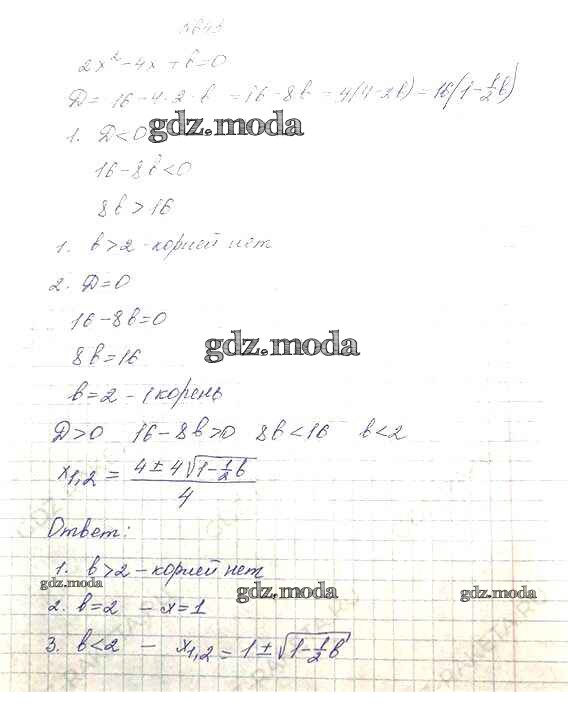 №641
2x² - 4x + b = 0
D = 16 - 4·2·b = 16 - 8b = 4(4-2b) = 16(1-½b)
gdz.moda
1. D<0
16-8b<0
8b>16
1. b>2 - корней нет
2. D=0
16-8b=0
gdz.moda
8b=16
b=2 - 1 корень
D>0 16-8b>0 8b<16 b<2
x₁,₂ = (4±4√(1-½b))/4
Ответ:
1. b>2 - корней нет
gdz.moda gdz.moda gdz.moda
2. b=2 - x=1
3. b<2 - x₁,₂ = 1±√(1-½b)